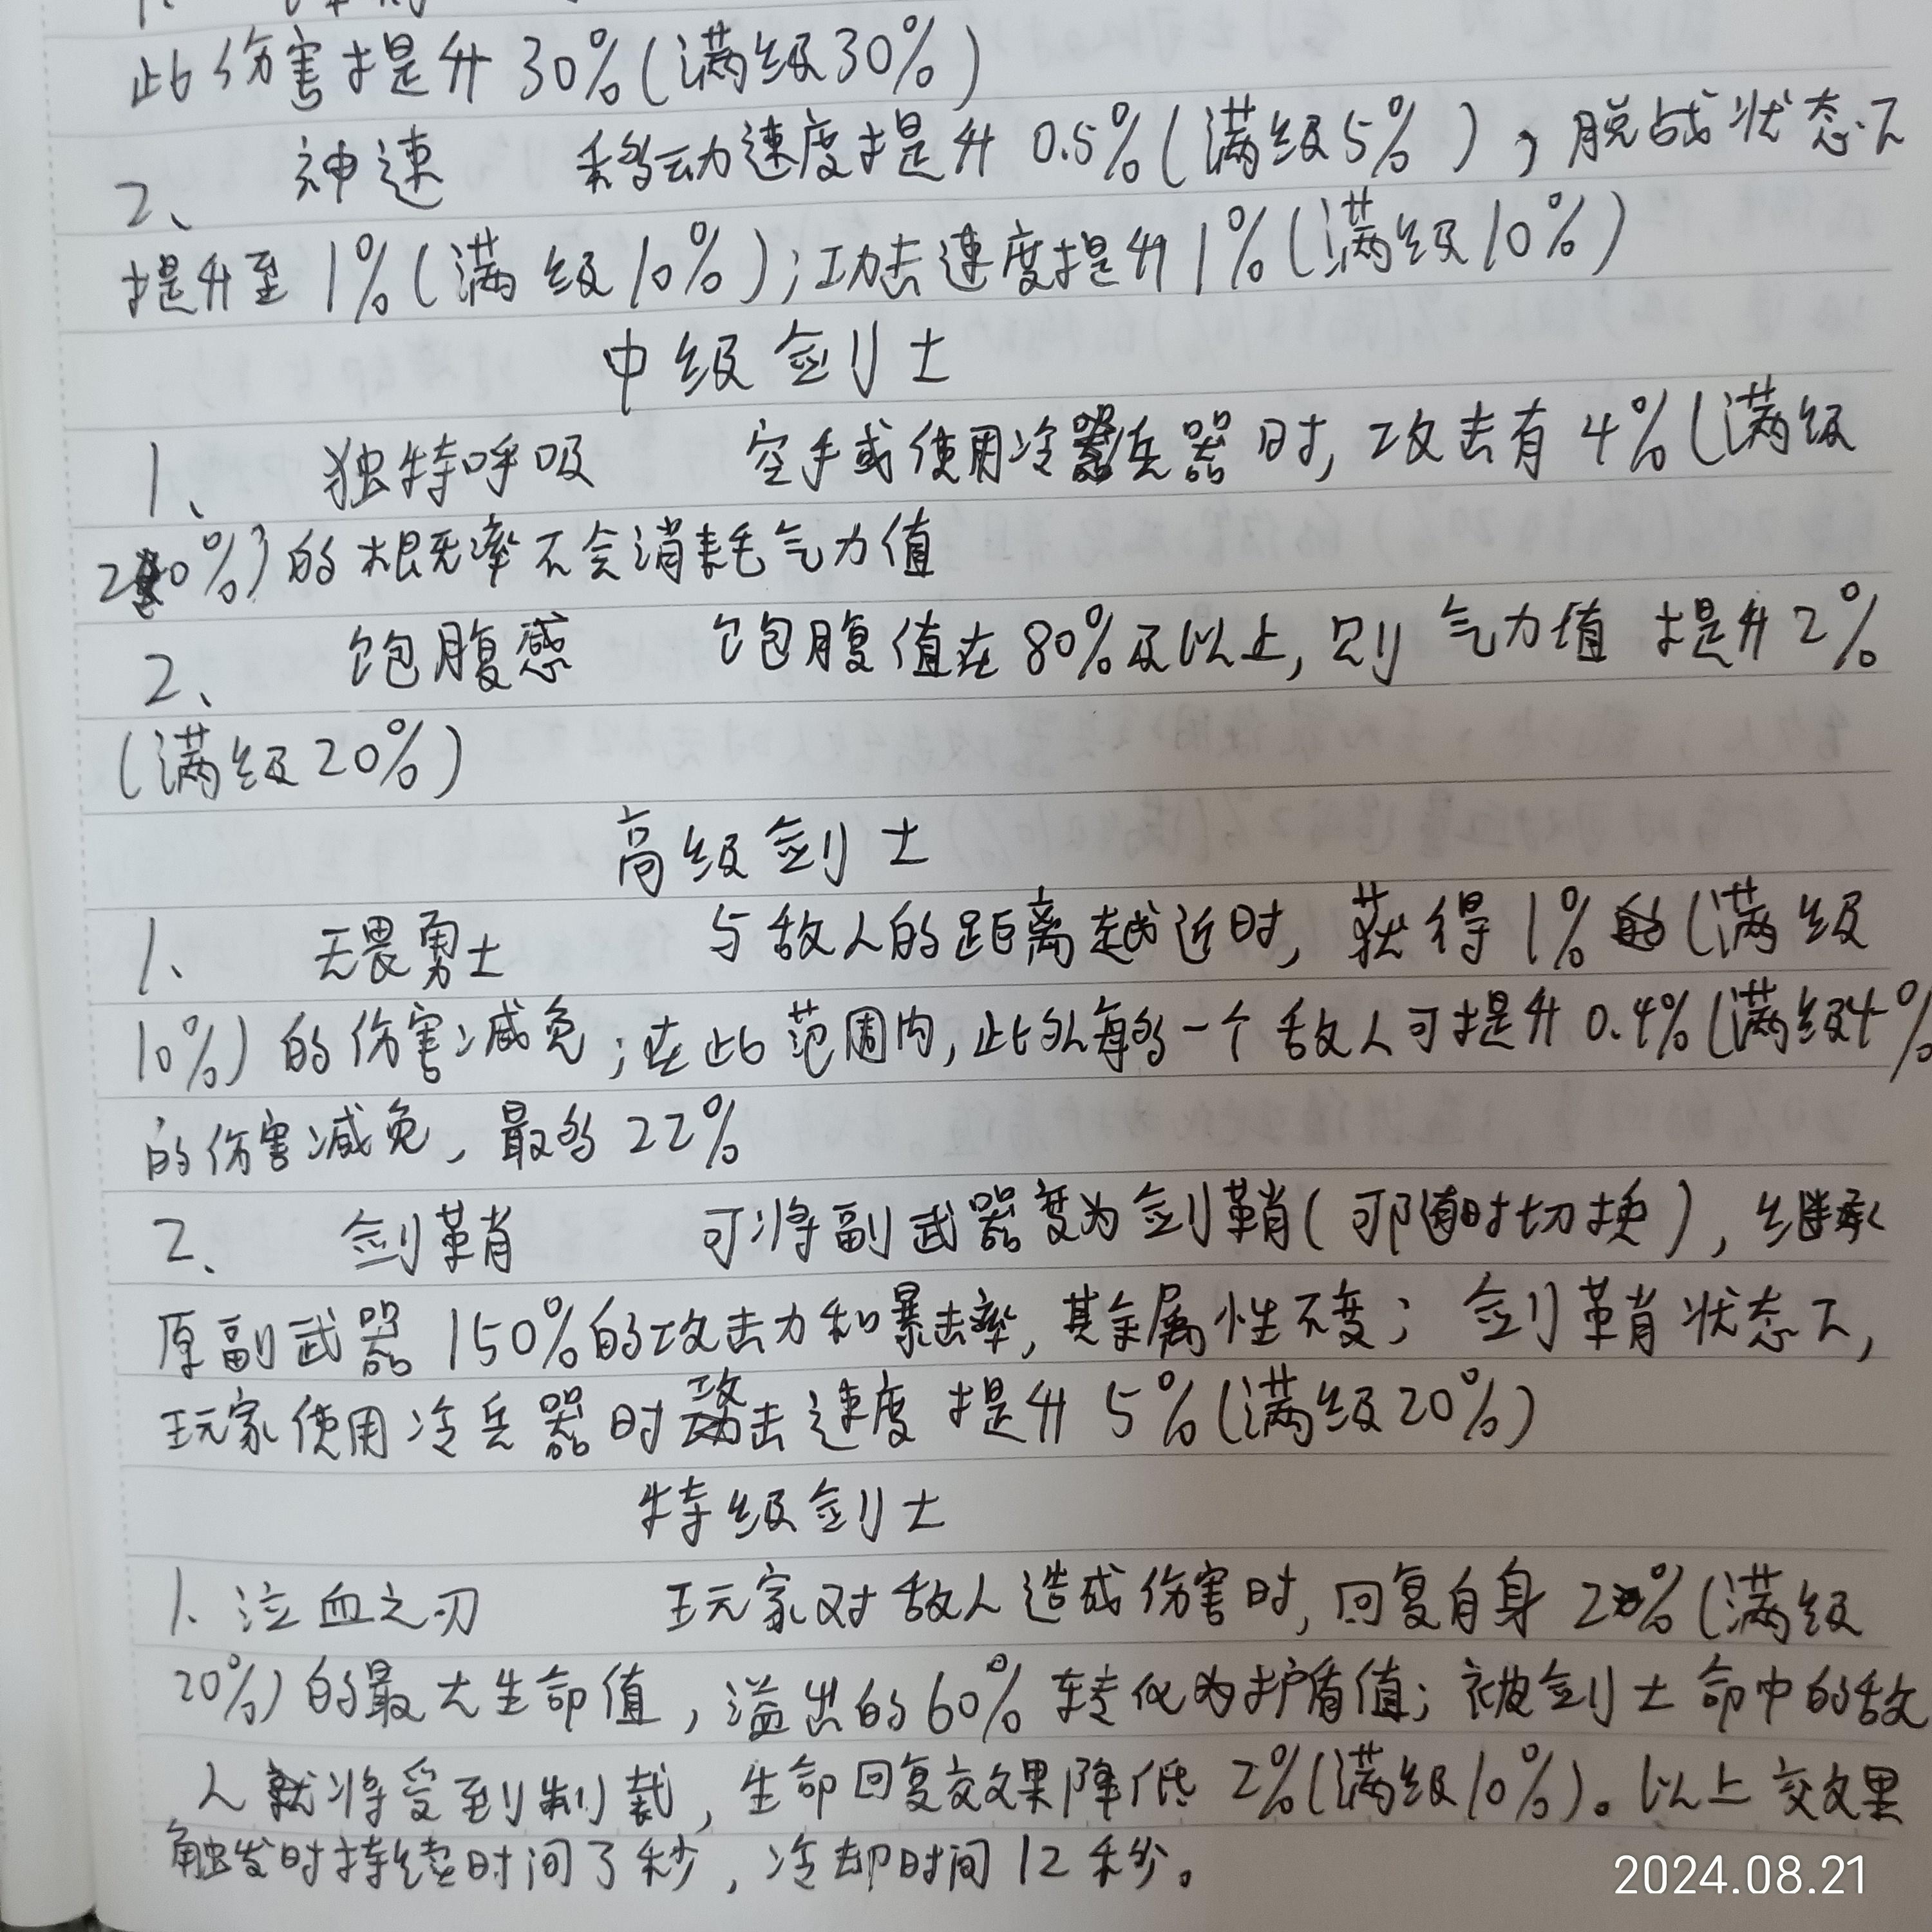 此伤害提升30%(满级30%)
2、 神速 移动速度提升0.5%(满级5%),脱战状态下
提升至1%(满级10%);功击速度提升1%(满级10%)
中级剑士
1、 独特呼吸 空手或使用冷兵器时,攻击有4%(满级
20%)的概率不会消耗气力值
2、 饱腹感 饱腹值在80%及以上,则气力值提升2%
(满级20%)
高级剑士
1、 无畏勇士 与敌人的距离越近时,获得1%(满级
10%)的伤害减免;在此范围内,此外每多一个敌人可提升0.4%(满级4%
的伤害减免,最多22%
2、 剑鞘 可将副武器变为剑鞘(可随时切换),继承
原副武器150%的攻击力和暴击率,其余属性不变;剑鞘状态下,
玩家使用冷兵器时攻击速度提升5%(满级20%)
特级剑士
1、泣血之刃 玩家对敌人造成伤害时,回复自身2%(满级
20%)的最大生命值,溢出的60%转化为护盾值;被剑士命中的敌
人就将受到制裁,生命回复效果降低2%(满级10%)。以上效果
触发时持续时间3秒,冷却时间12秒。
2024.08.21